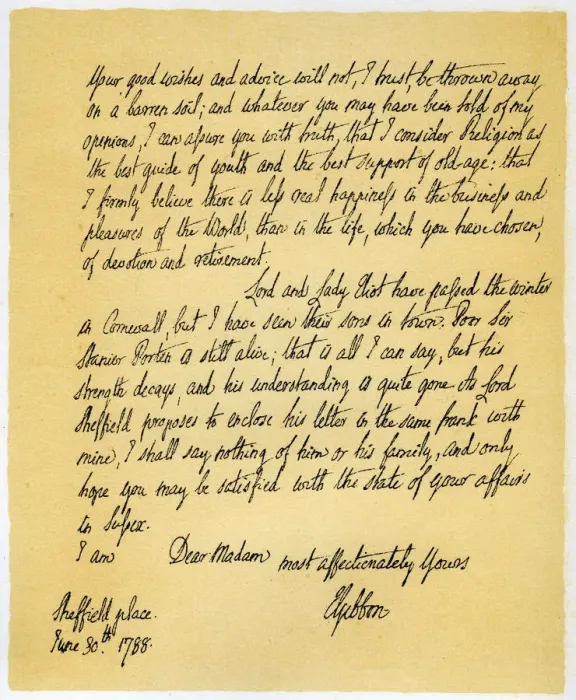 Your good wishes and advice will not, I trust, be thrown away
on a barren soil; and whatever you may have been told of my
opinions, I can aſsure you with truth, that I consider Religion as
the best guide of youth and the best support of old-age: that
I firmly believe there is leſs real happineſs in the buſineſs and
pleasures of the World, than in the life, which you have chosen,
of devotion and retirement.
Lord and Lady Eliot have paſsed the winter
in Cornwall, but I have seen their sons in town. Poor Sir
Stanier Porten is still alive; that is all I can say, but his
strength decays, and his understanding is quite gone. As Lord
Sheffield proposes to enclose his letter in the same frank with
mine, I shall say nothing of him or his family, and only
hope you may be satisfied with the state of your affairs
in Suſsex.
I am Dear Madam most affectionately Yours
EGibbon
Sheffield place.
June 30th. 1788.